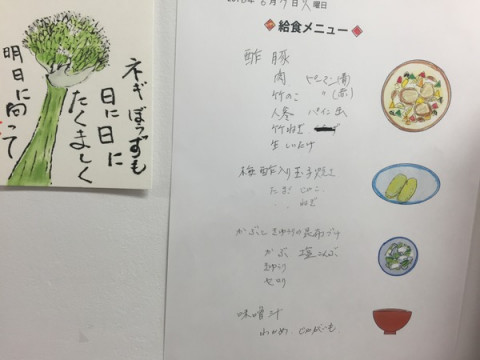 ネギぼうずも
日に日に
たくましく
明日に向って
2016年6月7日火曜日
給食メニュー
酢豚
肉 ピーマン(青)
竹のこ 〃(赤)
人参 パイン缶
竹ねぎ
生しいたけ
梅酢入り玉子焼き
たまご
ねぎ
かぶときゅうりの昆布づけ
かぶ 塩こんぶ
きゅうり
セロリ
味噌汁
わかめ じゃがいも